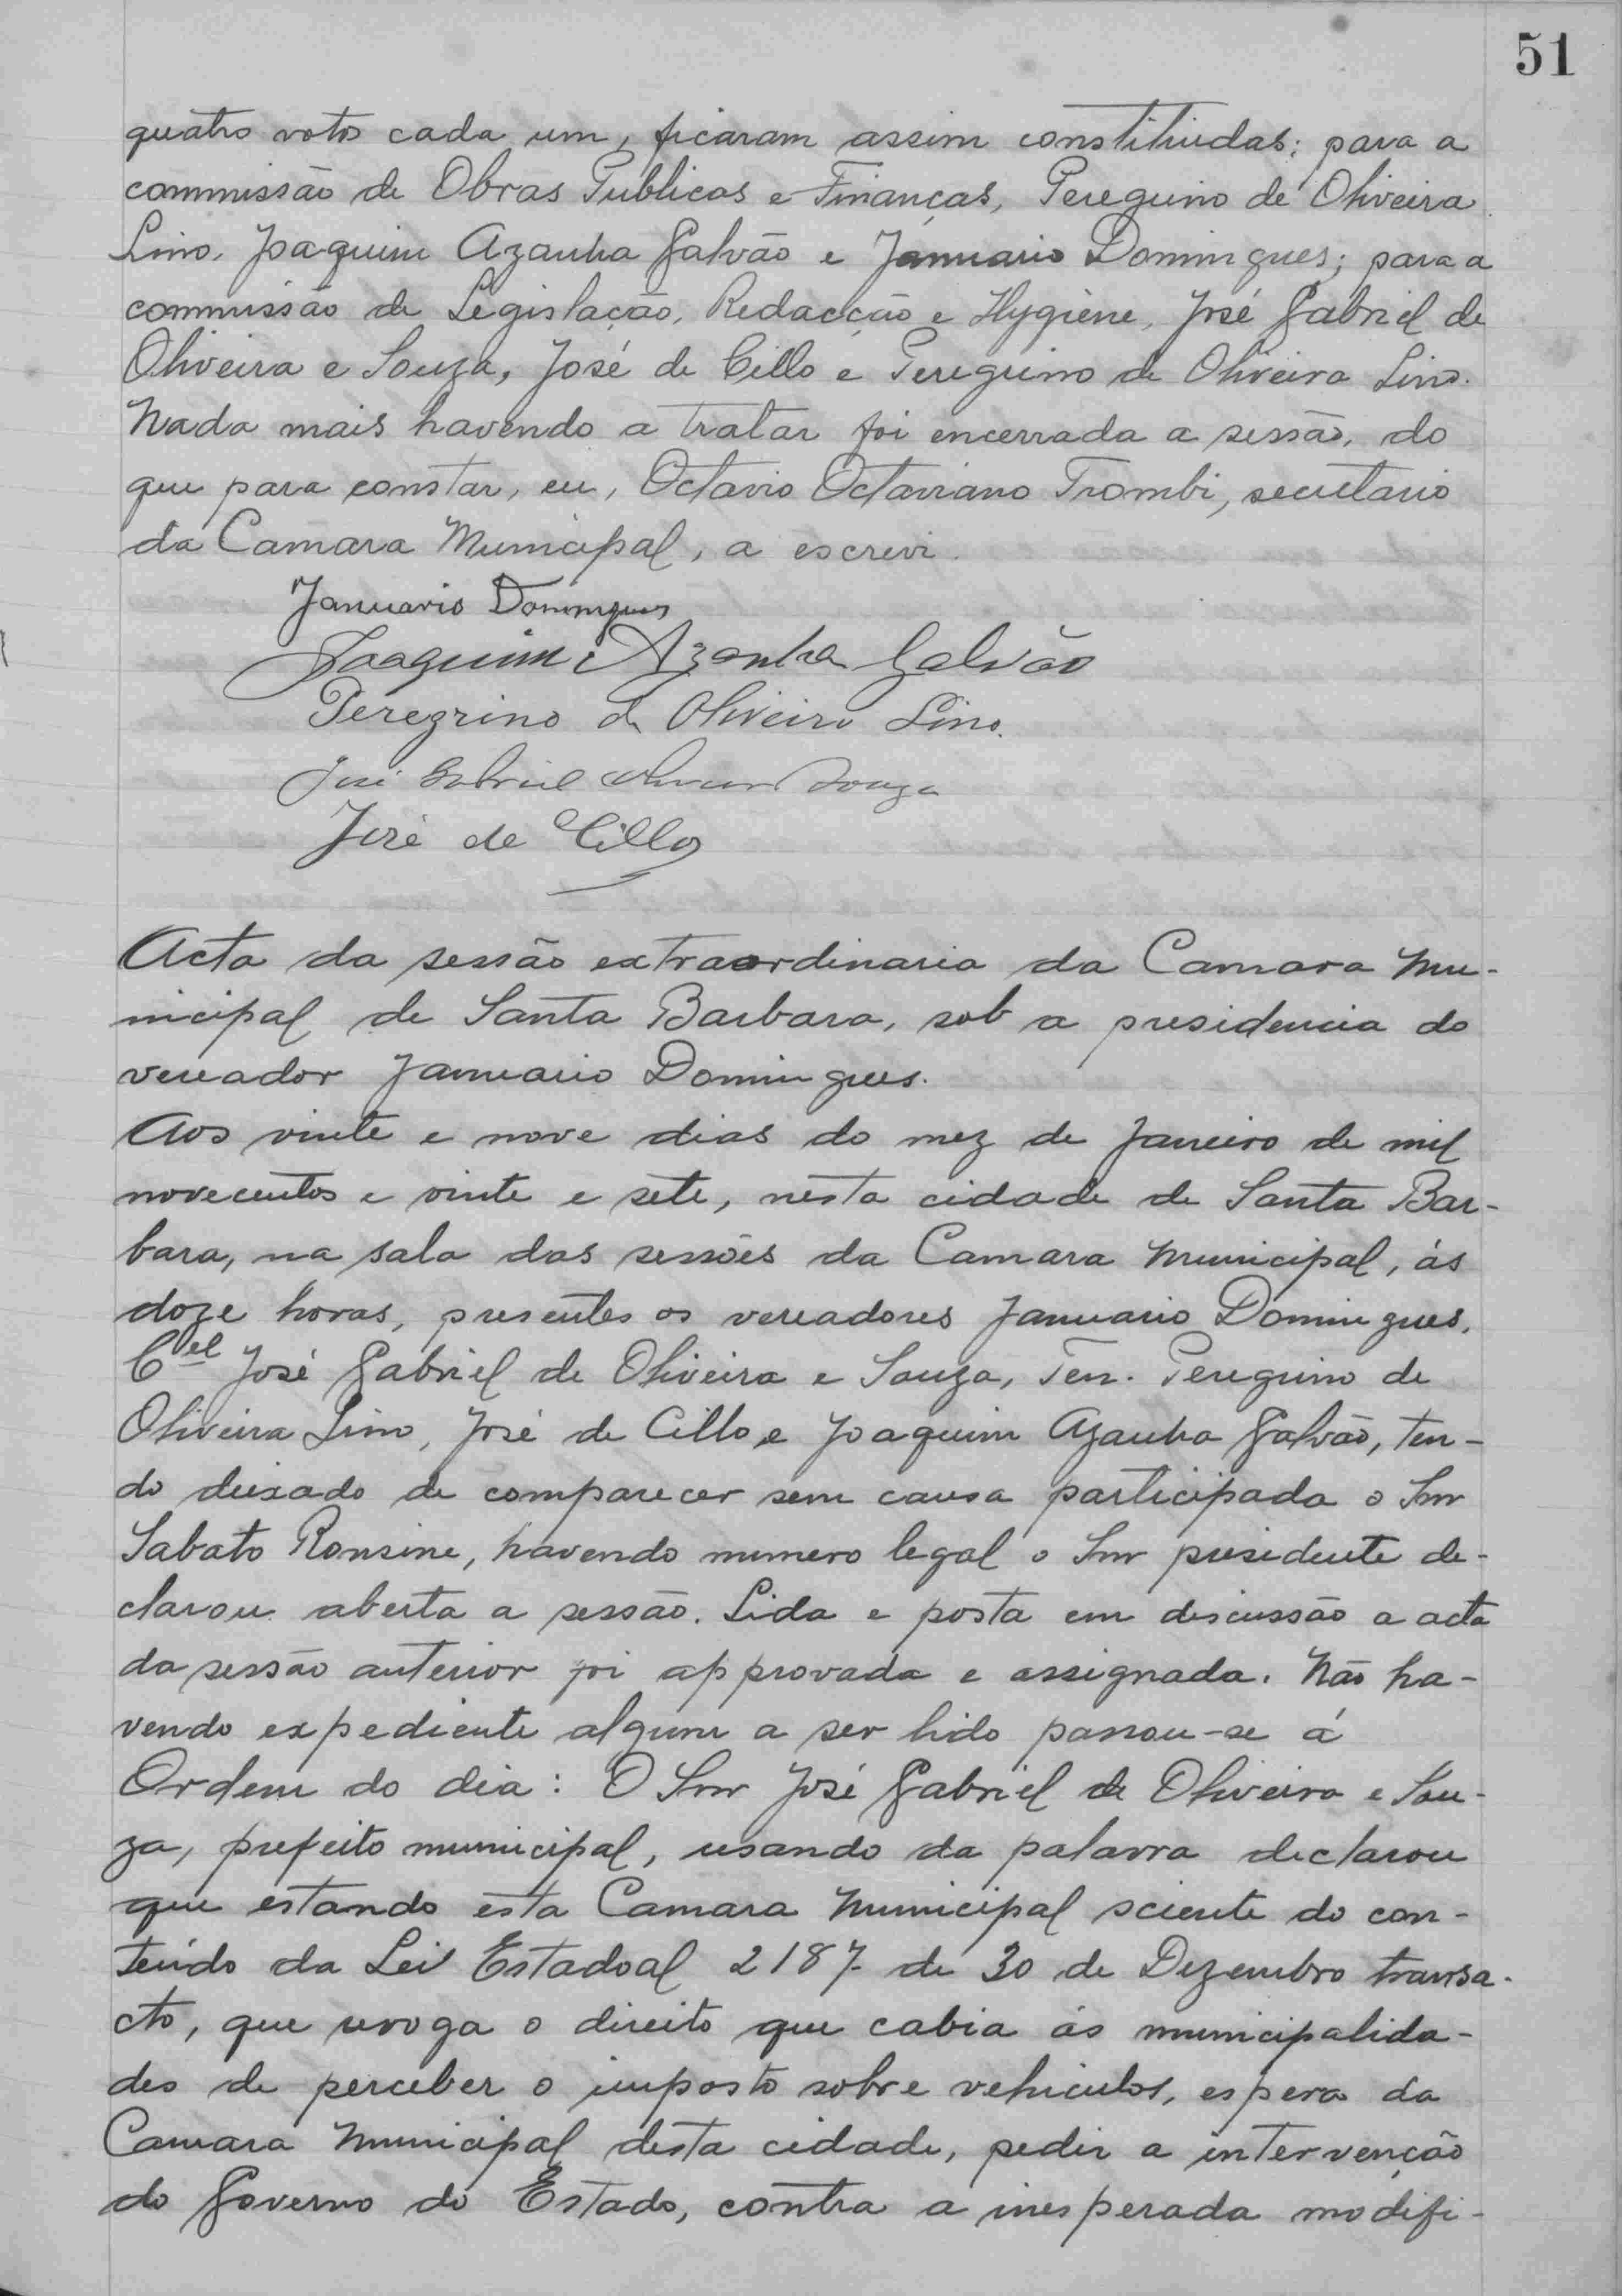 51
quatro votos cada um, ficaram assim constituidas: para a
commissão de Obras Publicas e Finanças, Peregrino de Oliveira
Lino, Joaquim Azanha Galvão e Januario Domingues; para a
commissão de Legislação, Redacção e Hygiene, José Gabriel de
Oliveira e Souza, José de Cillo e Peregrino de Oliveira Lino.
Nada mais havendo a tratar foi encerrada a sessão, do
que para constar, eu, Octavio Octaviano Trombi, secretario
da Camara Municipal, a escrevi.
Januario Domingues
Joaquim Azanha Galvão
Peregrino de Oliveira Lino.
José Gabriel Oliveira Souza
José de Cillo
Acta da sessão extraordinaria da Camara Mu-
nicipal de Santa Barbara, sob a presidencia do
vereador Januario Domingues.
Aos vinte e nove dias do mez de Janeiro de mil
novecentos e vinte e sete, nesta cidade de Santa Bar-
bara, na sala das sessões da Camara Municipal, ás
doze horas, presentes os vereadores Januario Domingues,
Cel José Gabriel de Oliveira e Souza, Ten. Peregrino de
Oliveira Lino, José de Cillo e Joaquim Azanha Galvão, ten-
do deixado de comparecer sem causa participada o Snr
Sabato Ronsine, havendo numero legal o Snr presidente de-
clarou aberta a sessão. Lida e posta em discussão a acta
da sessão anterior foi approvada e assignada. Não ha-
vendo expediente algum a ser lido passou-se á
Ordem do dia: O Snr José Gabriel de Oliveira e Sou-
za, prefeito municipal, usando da palavra declarou
que estando esta Camara Municipal sciente do con-
teúdo da Lei Estadoal 2187 de 30 de Dezembro transa-
cto, que revoga o direito que cabia ás municipalida-
des de perceber o imposto sobre vehiculos, espera da
Camara Municipal desta cidade, pedir a intervenção
do Governo do Estado, contra a inesperada modifi-